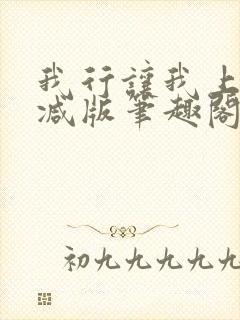 我行讓我上
減版筆趣閣
初九九九九九